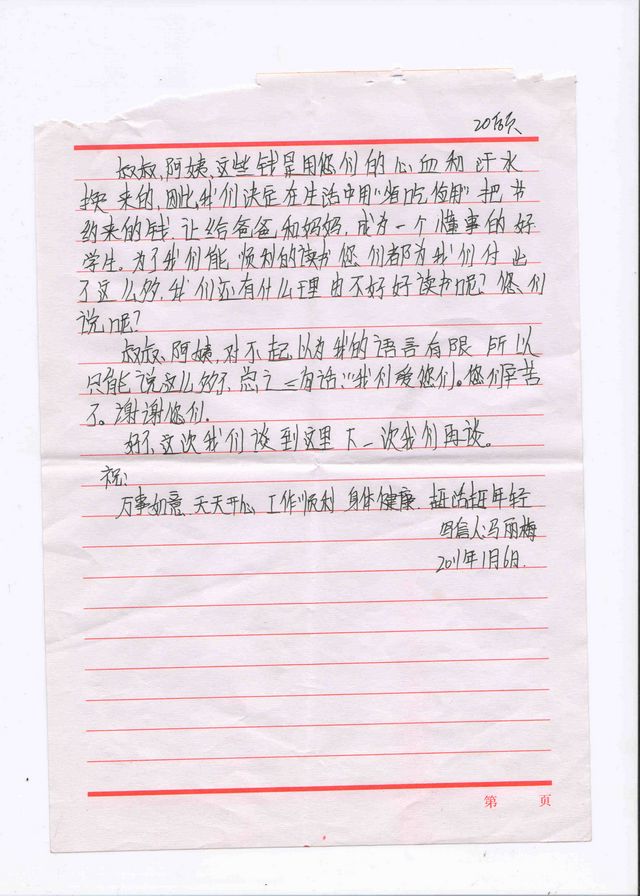 叔叔、阿姨,这些钱是用您们的心血和汗水
换来的,因此,我们决定在生活中用"省吃俭用"把节
约来的钱 让给爸爸和妈妈,成为一个懂事的好
学生。为了我们能顺利的读书 您们都为我们付出
了这么多,我们还有什么理由不好好读书呢?您们
说呢?
叔叔、阿姨,对不起,以为我的语言有限 所以
只能说这么多了,总之一句话:"我们爱您们。您们辛苦
了。谢谢您们.
好了,这次我们谈到这里 下一次我们再谈。
祝:
万事如意 天天开心 工作顺利 身体健康. 越活越年轻
写信人:马丽梅
2011年1月6日.
第 页